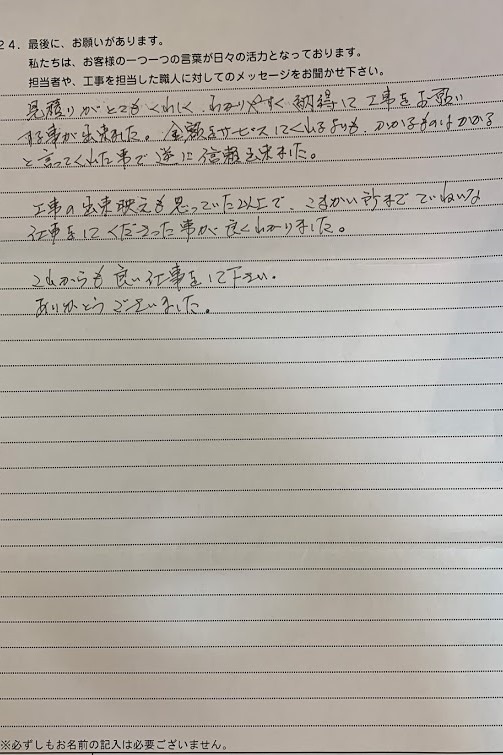 24. 最後に、お願いがあります。
私たちは、お客様の一つ一つの言葉が日々の活力となっております。
担当者や、工事を担当した職人に対してのメッセージをお聞かせ下さい。
見積りがとてもくわしく、わかりやすく納得して工事をお願い
する事が出来ました。金額をサービスしてくれるよりも、かかるものはかかる
と言ってくれた事で逆に信頼出来ました。
工事の出来映えも思っていた以上で、こまかい所までていねいな
仕事をしてくださった事が良くわかりました。
これからも良い仕事をして下さい。
ありがとうございました。
※必ずしもお名前の記入は必要ございません。